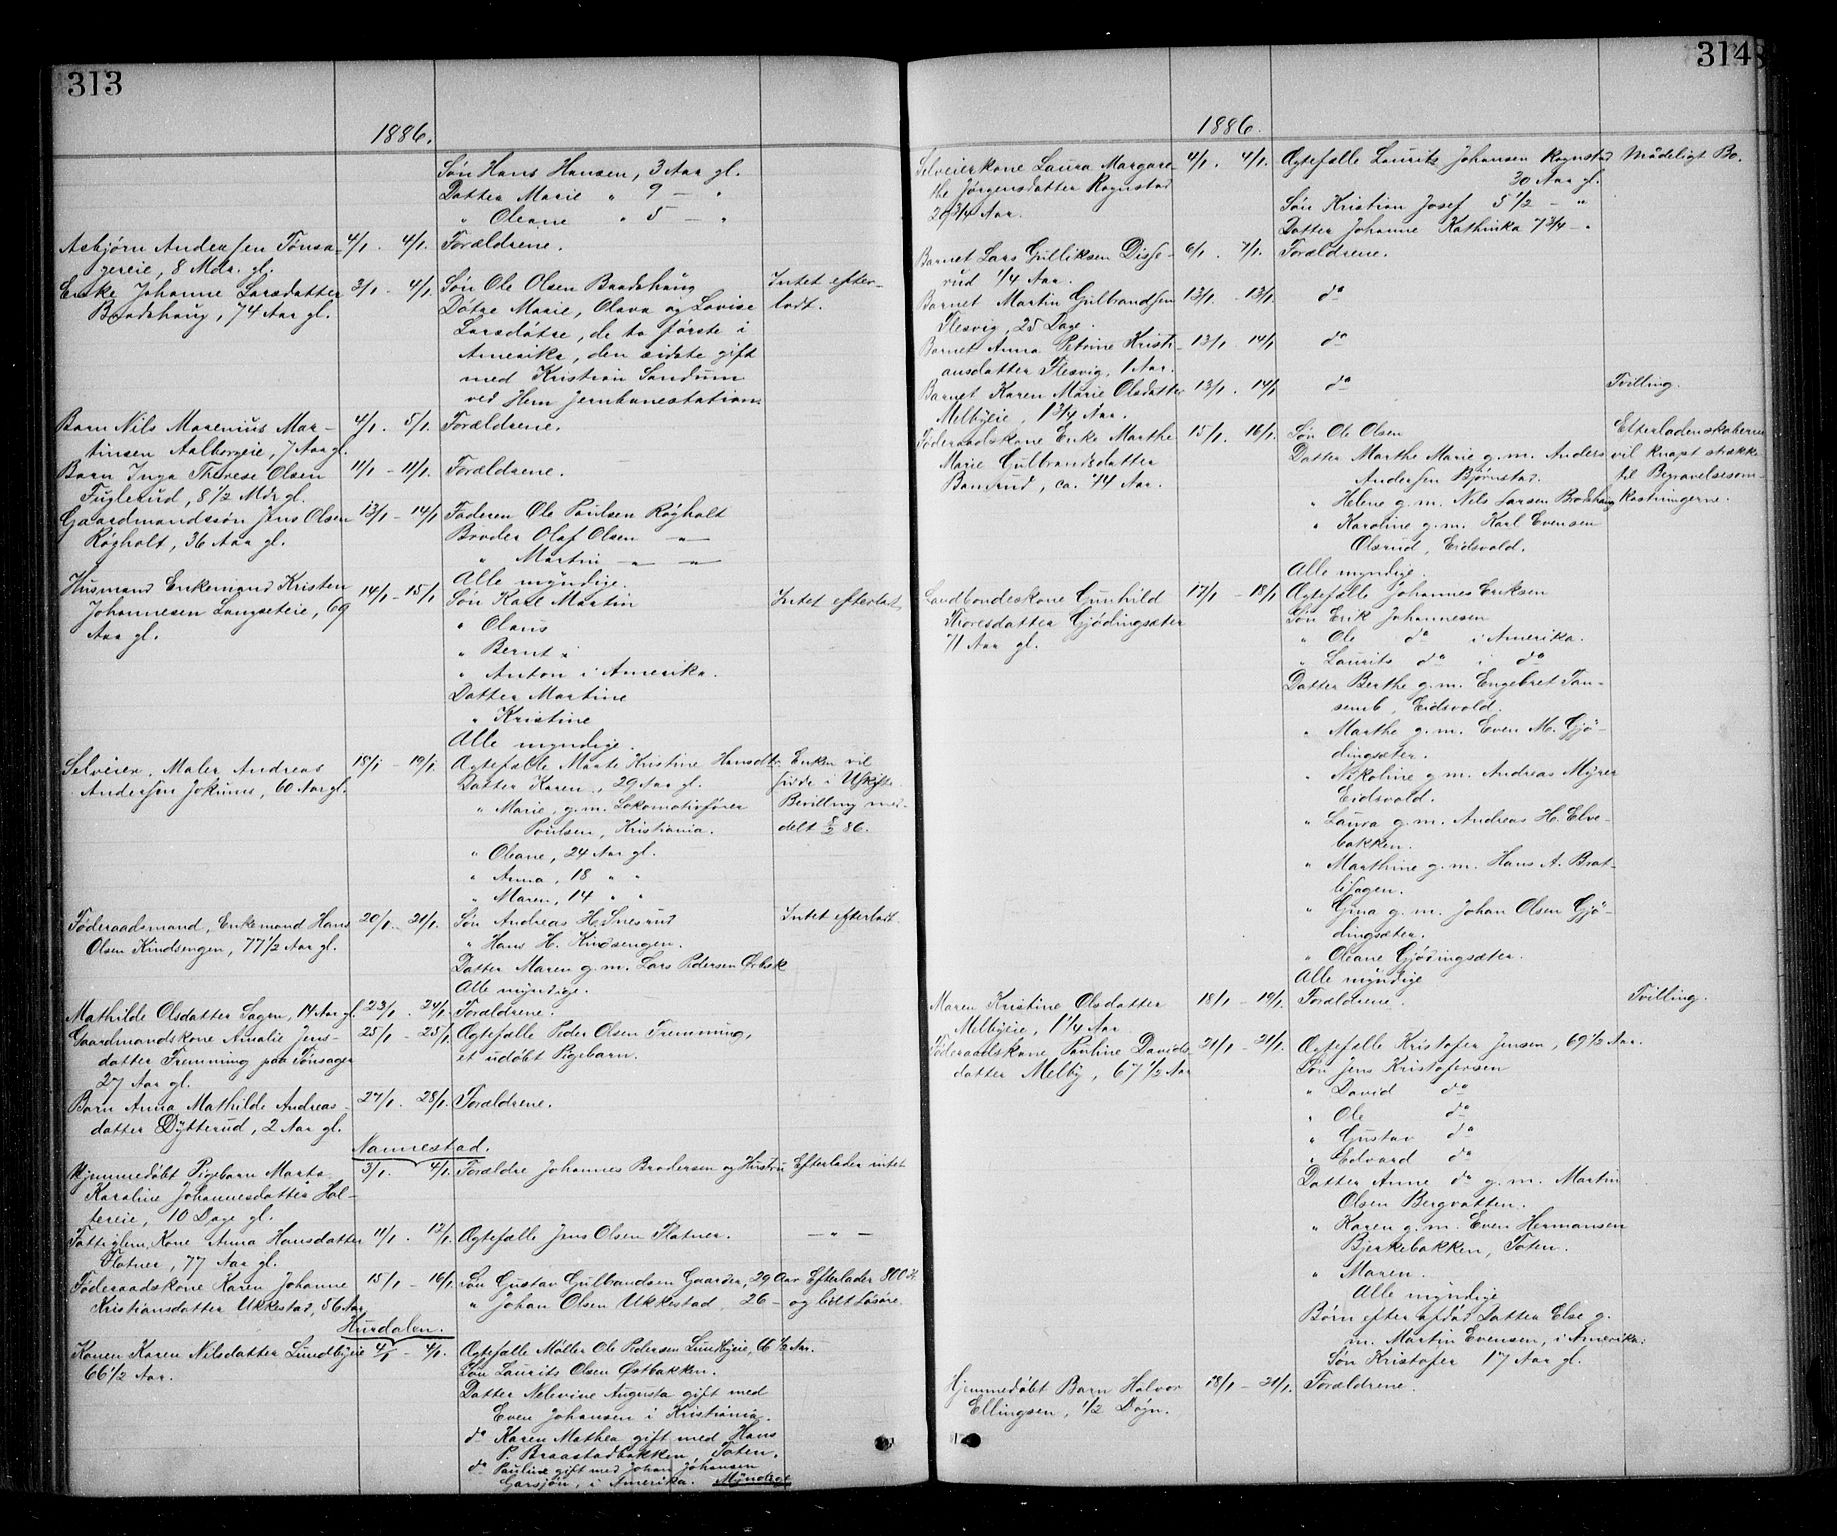 313
1886.
Søn Hans Hansen, 3 Aar gl.
Datter Marie " 9 — "
" Oleane " 5 — "
Asbjørn Andersen Tønsa- 4/1 . 4/1. Forældrene.
gereie, 8 Mdr. gl.
Enke Johanne Larsdatter 3/1 - 4/1. Søn Ole Olsen Baadshaug Intet efter-
Baadshaug, 74 Aar gl. Døtre Marie, Olava og Lovise ladt.
Larsdøtre, de to første i
Amerika, den sidste gift
med Kristian Sandum
ved Hem Jernbanestation.
Barn Nils Marenius Mar- 4/1 . 5/1. Forældrene.
tinsen Aalborgeie, 7 Aar gl.
Barn Inga Therese Olsen 11/1 - 11/1. Forældrene.
Fuglerud, 8 1/2 Mdr gl.
Gaardmandssøn Jens Olsen 13/1 - 14/1 Faderen Ole Paulsen Røgholt
Røgholt, 36 Aar gl. Broder Olaf Olsen — " —
" Martin — " — "
Alle myndige.
Husmand Enkemand Kristen 14/1 - 15/1 Søn Karl Martin Intet efterladt
Johannesen Langseteie, 69 " Olaus
Aar gl. " Bernt i
" Anton i Amerika.
Datter Martine
" Kristine
Alle myndige.
Selveier, Maler Andreas 18/1 - 19/1. Ægtefælle Marte Kristine Hansdtr. Enken vil
Andersen Jokrines, 60 Aar gl. Datter Karen, 29 Aar gl. sidde i Uskifte.
" Marie, g.m. Lokomotivfører Bevilling med-
Paulsen, Kristiania. delt 8/2 86.
" Oleane, 24 Aar gl.
" Anna, 18 " "
" Maren, 14 " "
Føderaadsmand, Enkemand Hans 20/1 - 21/1. Søn Andreas H. Snesrud Intet efterladt.
Olsen Kindsengen, 77 1/2 Aar gl. " Hans H. Kindsengen.
Datter Maren g.m. Lars Pedersen Ørbæk
Alle myndige.
Mathilde Olsdatter Sagen, 14 Aar gl. 23/1 . 24/1. Forældrene.
Gaardmandskone Amalie Jens- 25/1 - 25/1. Ægtefælle Peder Olsen Tremming,
datter Tremming paa Tønsager et udøbt Pigebarn.
27 Aar gl.
Barn Anna Mathilde Andreas- 27/1 . 28/1. Forældrene.
datter Dytterud, 2 Aar gl.
Nannestad.
Hjemmedøbt Pigebarn Marta 3/1. 4/1. Forældre Johannes Brodersen og Hustru Efterlader intet
Karoline Johannesdatter Hol-
tereie, 10 Dage gl.
Fattiglem, Kone Anna Hansdatter 11/1 . 12/1. Ægtefælle Jens Olsen Flatner. — " —
Flatner, 77 Aar gl.
Føderaadskone Karen Johanne 15/1 - 16/1. Søn Gustav Gulbrandsen Gaarder, 29 Aar Efterlader 800 Kr.
Kristiansdatter Ukkestad, 56 Aar. " Johan Olsen Ukkestad, 26 — og lidt Løsøre.
Hurdalen.
Konen Karen Nilsdatter Lundbyeie 4/1 - 4/1. Ægtefælle Møller Ole Pedersen Lundbyeie, 66 1/2 Aar.
66 1/2 Aar. Søn Laurits Olsen Østbakken.
Datter Nelevine Augusta gift med
Even Johansen i Kristiania.
do Karen Mathea gift med Hans
P. Braastadbakken, Toten.
do Pauline gift med Johan Johansen
Garsjøn, i Amerika. Myndige
314
1886.
Selveierkone Laura Margare- 4/1 . 4/1. Ægtefælle Laurits Johansen Rognstad Maadeligt Bo.
the Jørgensdatter Rognstad 30 Aar gl.
29 3/4 Aar. Søn Kristian Josef 5 1/2 — "
Datter Johanne Kathinka 7 3/4 — "
Barnet Lars Gulliksen Disse- 6/1 . 7/1. Forældrene.
rud 1/4 Aar.
Barnet Martin Gulbrandsen 13/1 . 13/1. do
Flesvig, 25 Dage.
Barnet Anna Petrine Kristi- 13/1 . 14/1 do
ansdatter Flesvig, 1 Aar.
Barnet Karen Marie Olsdatter 13/1 . 14/1 do Tvilling.
Melbyeie, 1 3/4 Aar.
Føderaadskone Enke Marthe 15/1 . 16/1. Søn Ole Olsen Efterladenskaberne
Marie Gulbrandsdatter Datter Marthe Marie g.m. Anders vil knapt strække
Bamrud, ca. 74 Aar. Andersen Bjørnstad. til Begravelsesom-
" Helene g.m. Nils Larsen Brodshaug kostningerne.
" Karoline g.m. Karl Evensen
Olsrud, Eidsvold.
Alle myndige.
Landbondeskone Gunhild 17/1 - 18/1 Ægtefælle Johannes Eriksen
Thoresdatter Gjødingsæter Søn Erik Johannesen
71 Aar gl. " Ole do i Amerika.
" Laurits do i do
Datter Berthe g.m. Engebret Tan-
semb, Eidsvold.
" Marthe g.m. Even M. Gjø-
dingsæter.
" Nikoline g.m. Andreas Myrer
Eidsvold.
" Laura g.m. Andreas H. Elve-
bakken.
" Marthine g.m. Hans A. Brat-
lihagen.
" Gina g.m. Johan Olsen Gjø-
dingsæter.
" Oleane Gjødingsæter.
Alle myndige
Maren Kristine Olsdatter 18/1 - 19/1. Forældrene. Tvilling.
Melbyeie, 1 1/4 Aar.
Føderaadskone, Pauline Davids- 21/1 - 21/1. Ægtefælle Kristofer Jensen, 69 1/2 Aar.
datter Melby, 67 1/2 Aar Søn Jens Kristofersen
" David do
" Ole do
" Gustav do
" Edvard do
Datter Anne do g.m. Martin
Olsen Bergvatten.
" Karen g.m. Even Hermansen
Bjerkebakken, Toten.
" Maren.
Alle myndige
Børn efter afdød Datter Else g.
m. Martin Evensen, i Amerika:
Søn Kristofer 17 Aar gl.
Hjemmedøbt Barn Halvor 18/1 - 21/1. Forældrene.
Ellingsen, 1/2 Døgn.